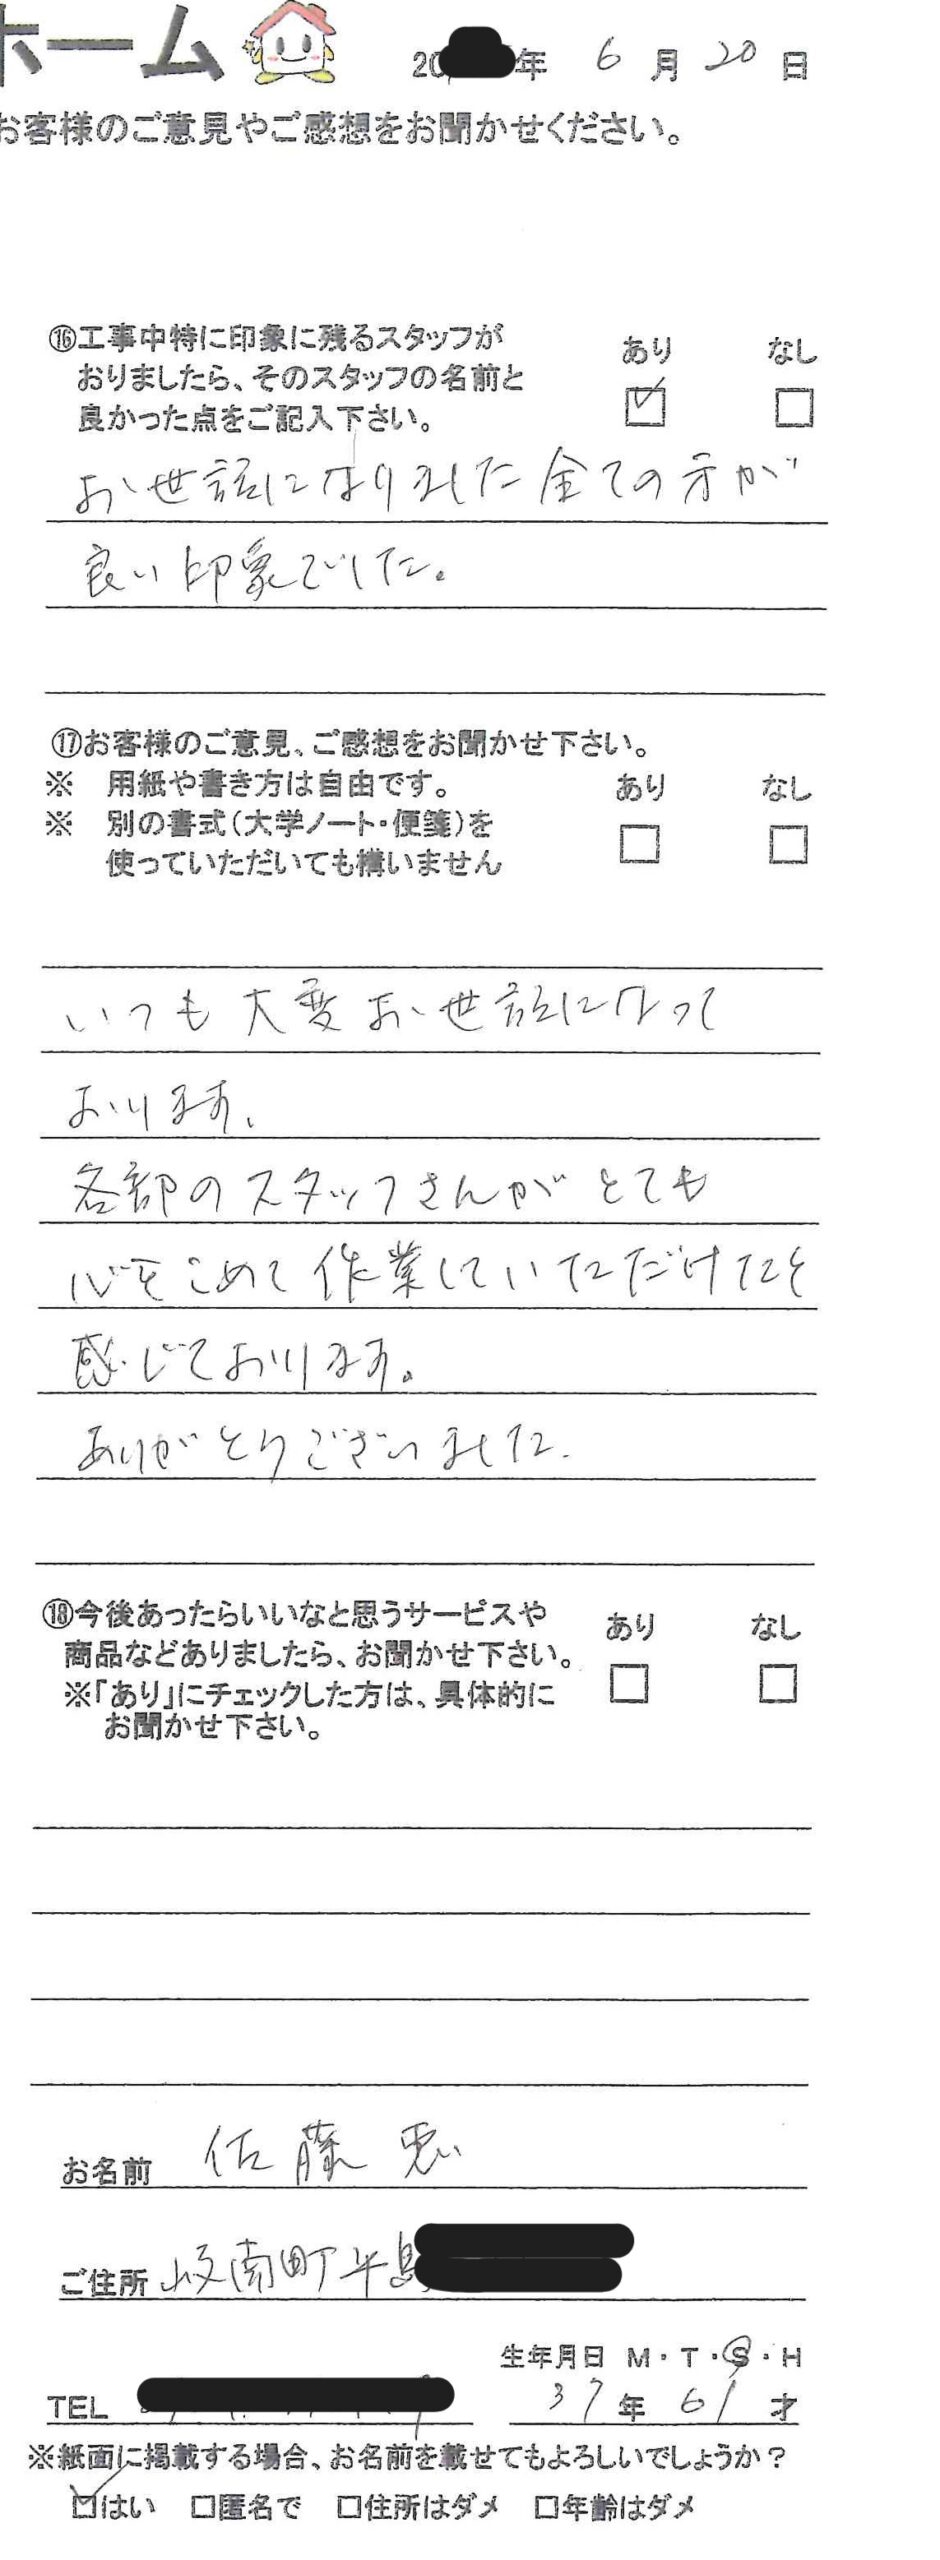 ホーム
20 年 6月 20日
お客様のご意見やご感想をお聞かせください。
⑯工事中特に印象に残るスタッフが
おりましたら、そのスタッフの名前と
良かった点をご記入下さい。
あり なし
お世話になりました全ての方が
良い印象でした。
⑰お客様のご意見、ご感想をお聞かせ下さい。
※ 用紙や書き方は自由です。
※ 別の書式(大学ノート・便箋)を
使っていただいても構いません
あり なし
いつも大変お世話になって
おります。
各部のスタッフさんがとても
心をこめて作業していただけたと
感じております。
ありがとうございました.
⑱今後あったらいいなと思うサービスや
商品などありましたら、お聞かせ下さい。
※「あり」にチェックした方は、具体的に
お聞かせ下さい。
あり なし
お名前 佐藤
ご住所 岐南町平島
生年月日 M・T・S・H
TEL 37年 61才
※紙面に掲載する場合、お名前を載せてもよろしいでしょうか?
☑はい □匿名で □住所はダメ □年齢はダメ